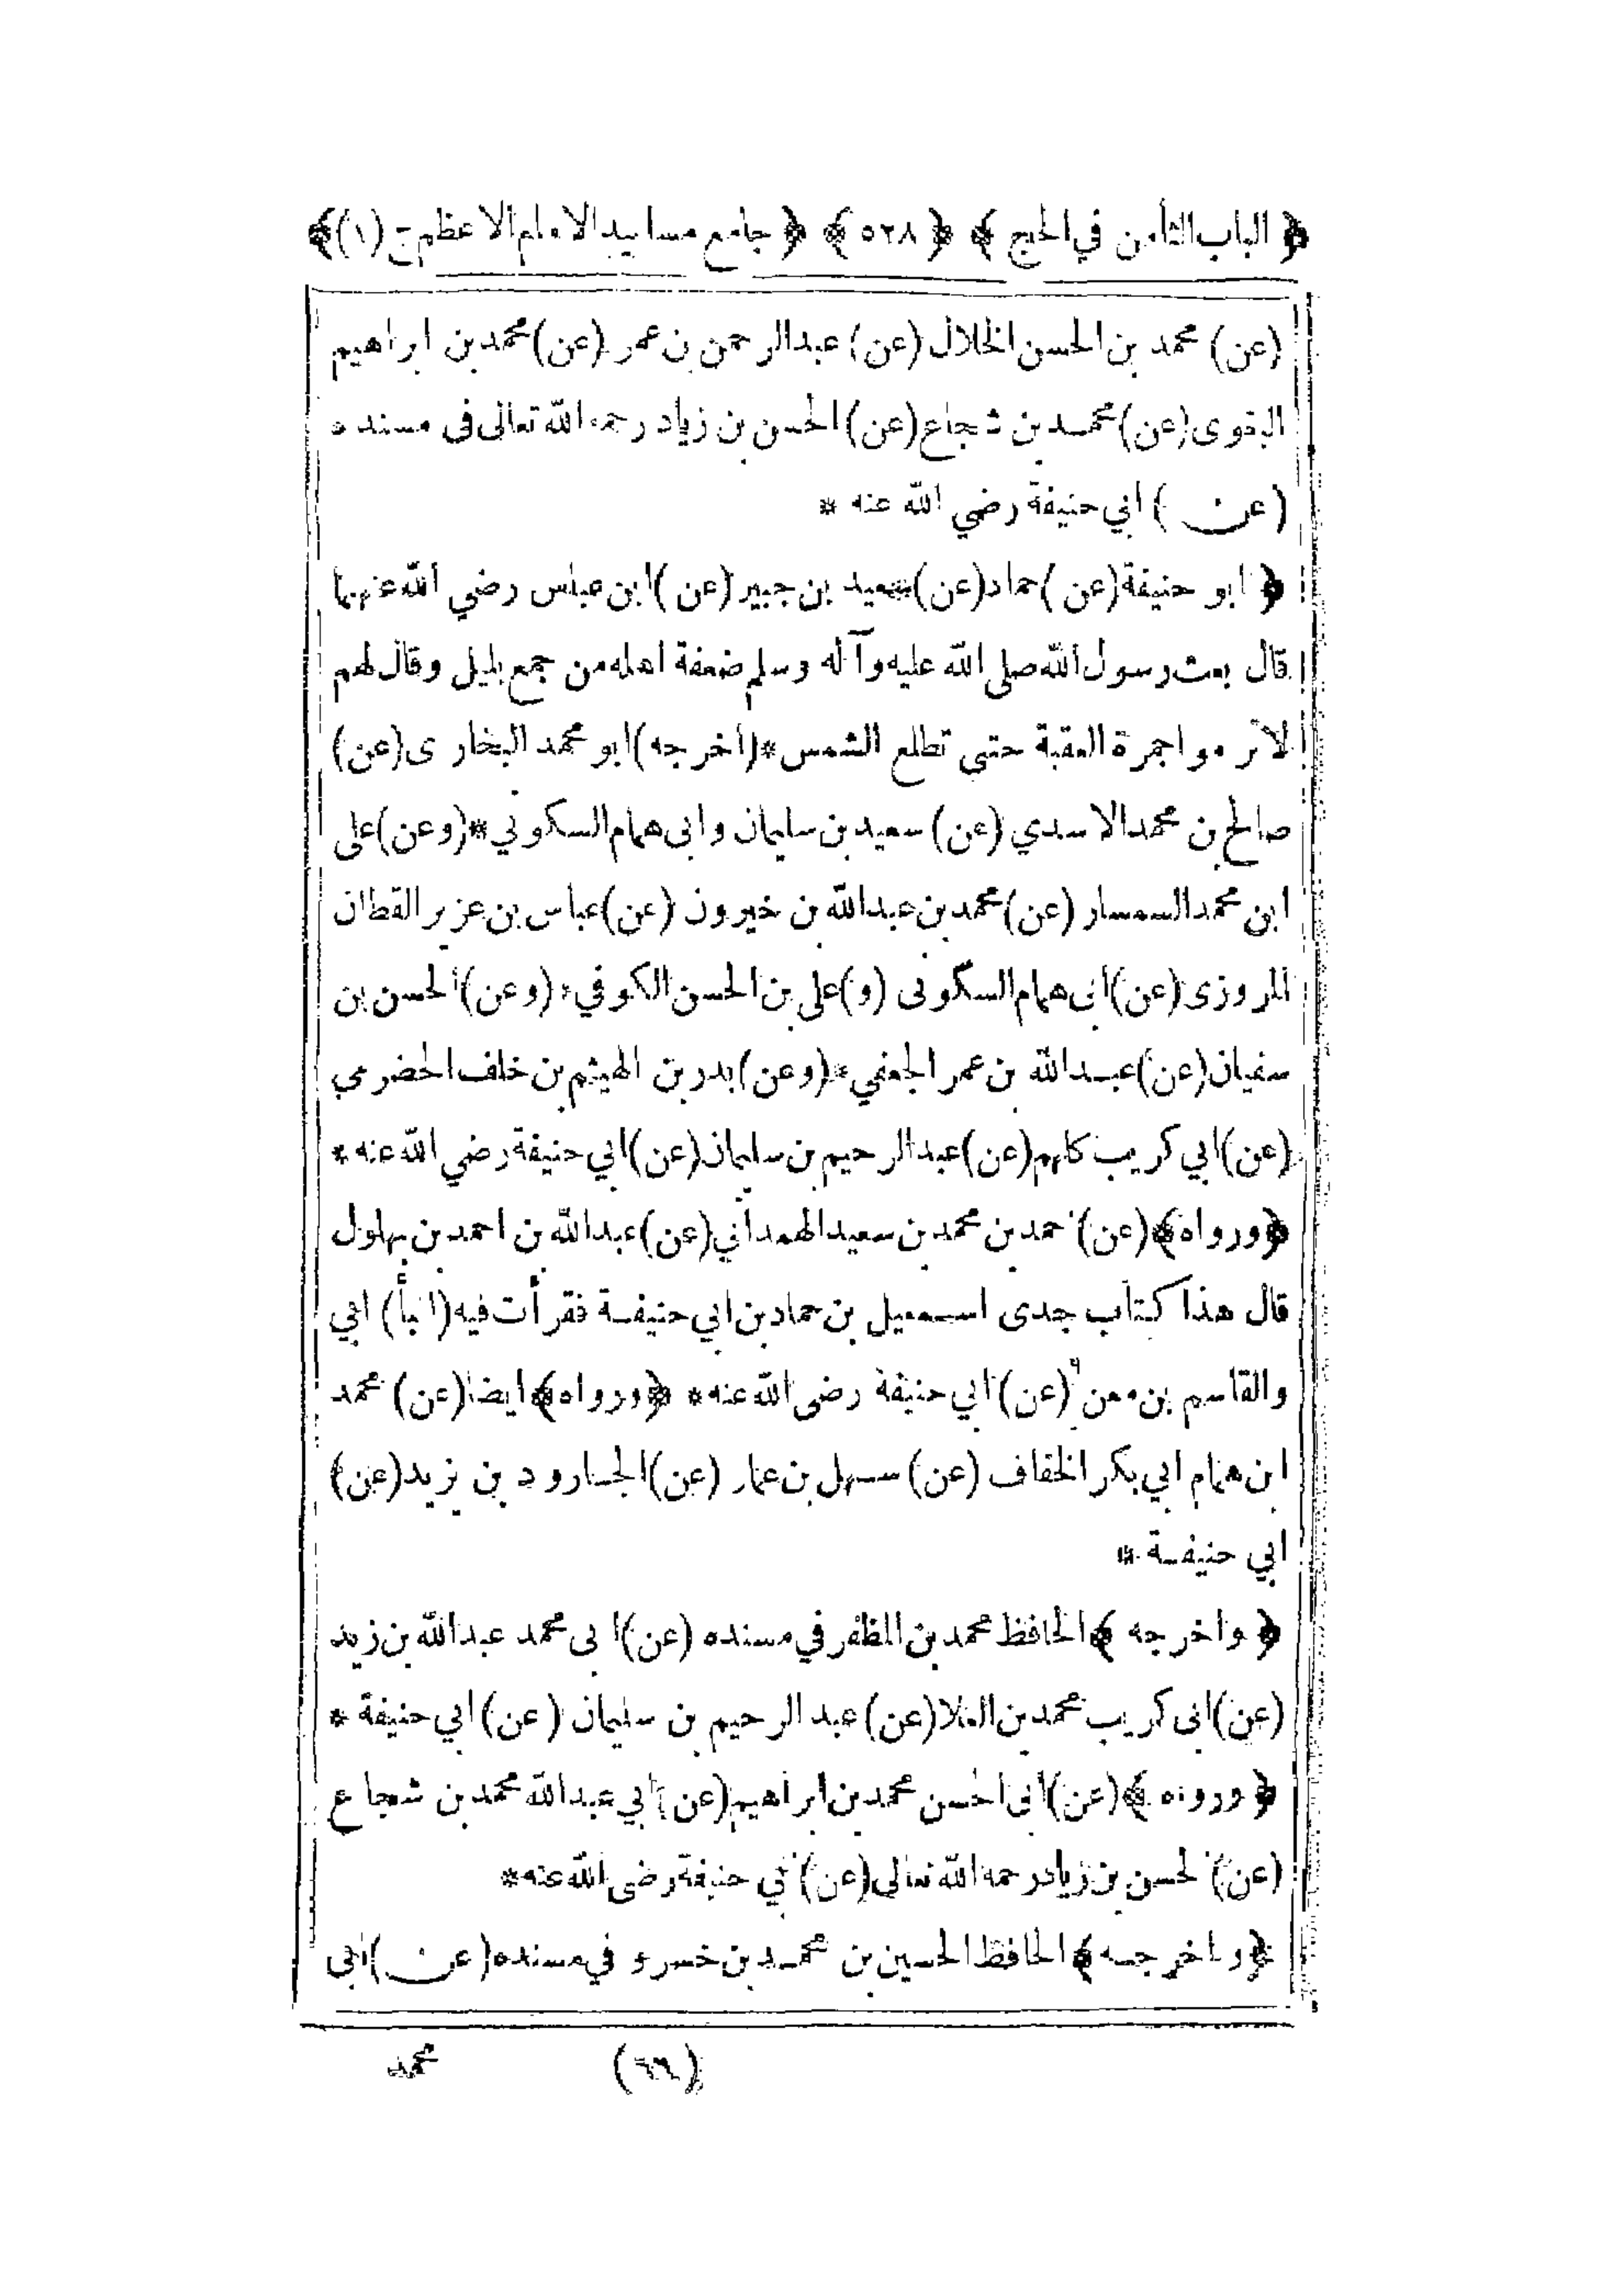 ﴿ الباب الثامن في الحج ﴾ ﴿ ٥٢٨ ﴾ ﴿ جامع مسانيد الامام الاعظم ج (١) ﴾
(عن) محمد بن الحسن الخلال (عن) عبدالرحمن بن عمر (عن) محمد بن ابراهيم
البغوى (عن) محمد بن شجاع (عن) الحسن بن زياد رحمه الله تعالى فى مسنده
(عن) ابي حنيفة رضي الله عنه *
﴿ ابو حنيفة (عن) حماد (عن) سعيد بن جبير (عن) ابن عباس رضي الله عنهما
قال بعث رسول الله صلى الله عليه وآله وسلم ضعفة اهله من جمع بليل وقال لهم
لا ترموا جمرة العقبة حتى تطلع الشمس * (اخرجه) ابو محمد البخارى (عن)
صالح بن محمد الاسدي (عن) سعيد بن سليمان وابى همام السكوني * (وعن) على
ابن محمد السمسار (عن) محمد بن عبدالله بن خيرون (عن) عباس بن عزير القطان
المروزى (عن) ابى همام السكونى (و) على بن الحسن الكوفي * (وعن) الحسن بن
سفيان (عن) عبدالله بن عمر الجعفي * (وعن) بدر بن الهيثم بن خلف الحضرمي
(عن) ابي كريب كلهم (عن) عبدالرحيم بن سليمان (عن) ابي حنيفة رضي الله عنه *
﴿ ورواه ﴾ (عن) احمد بن محمد بن سعيد الهمداني (عن) عبدالله بن احمد بن بهلول
قال هذا كتاب جدى اسمعيل بن حماد بن ابي حنيفة فقرأت فيه (انبأ) ابي
والقاسم بن معن (عن) ابي حنيفة رضى الله عنه * ﴿ ورواه ﴾ ايضا (عن) محمد
ابن همام ابي بكر الخفاف (عن) سهل بن عمار (عن) الجارود بن يزيد (عن)
ابي حنيفة *
﴿ واخرجه ﴾ الحافظ محمد بن المظفر في مسنده (عن) ابى محمد عبدالله بن زيد
(عن) ابى كريب محمد بن العلا (عن) عبد الرحيم بن سليمان (عن) ابي حنيفة *
﴿ ورواه ﴾ (عن) ابى الحسن محمد بن ابراهيم (عن) ابي عبدالله محمد بن شجاع
(عن) الحسن بن زياد رحمه الله تعالى (عن) ابي حنيفة رضى الله عنه *
﴿ واخرجه ﴾ الحافظ الحسين بن محمد بن خسرو في مسنده (عن) ابى
(٦٦) محمد